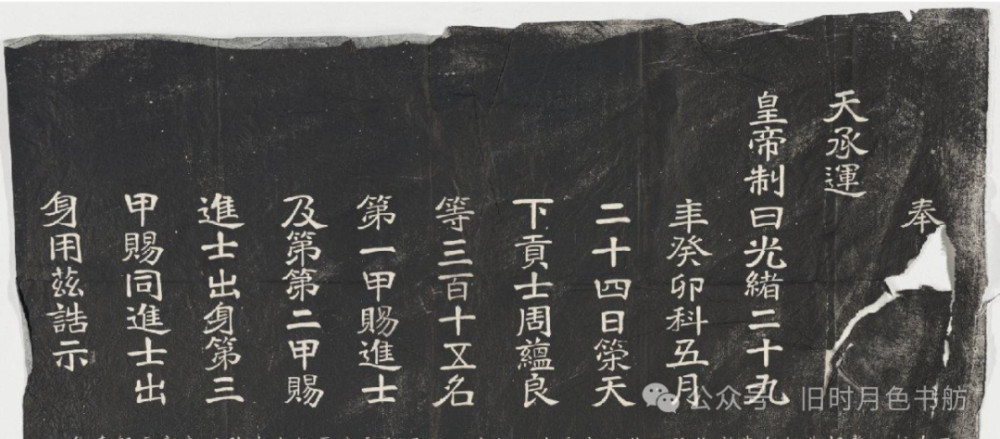 奉
天承運
皇帝制曰光緒二十九
年癸卯科五月
二十四日策天
下貢士周蘊良
等三百十五名
第一甲賜進士
及第第二甲賜
進士出身第三
甲賜同進士出
身用茲誥示
公众号 旧时月色书舫